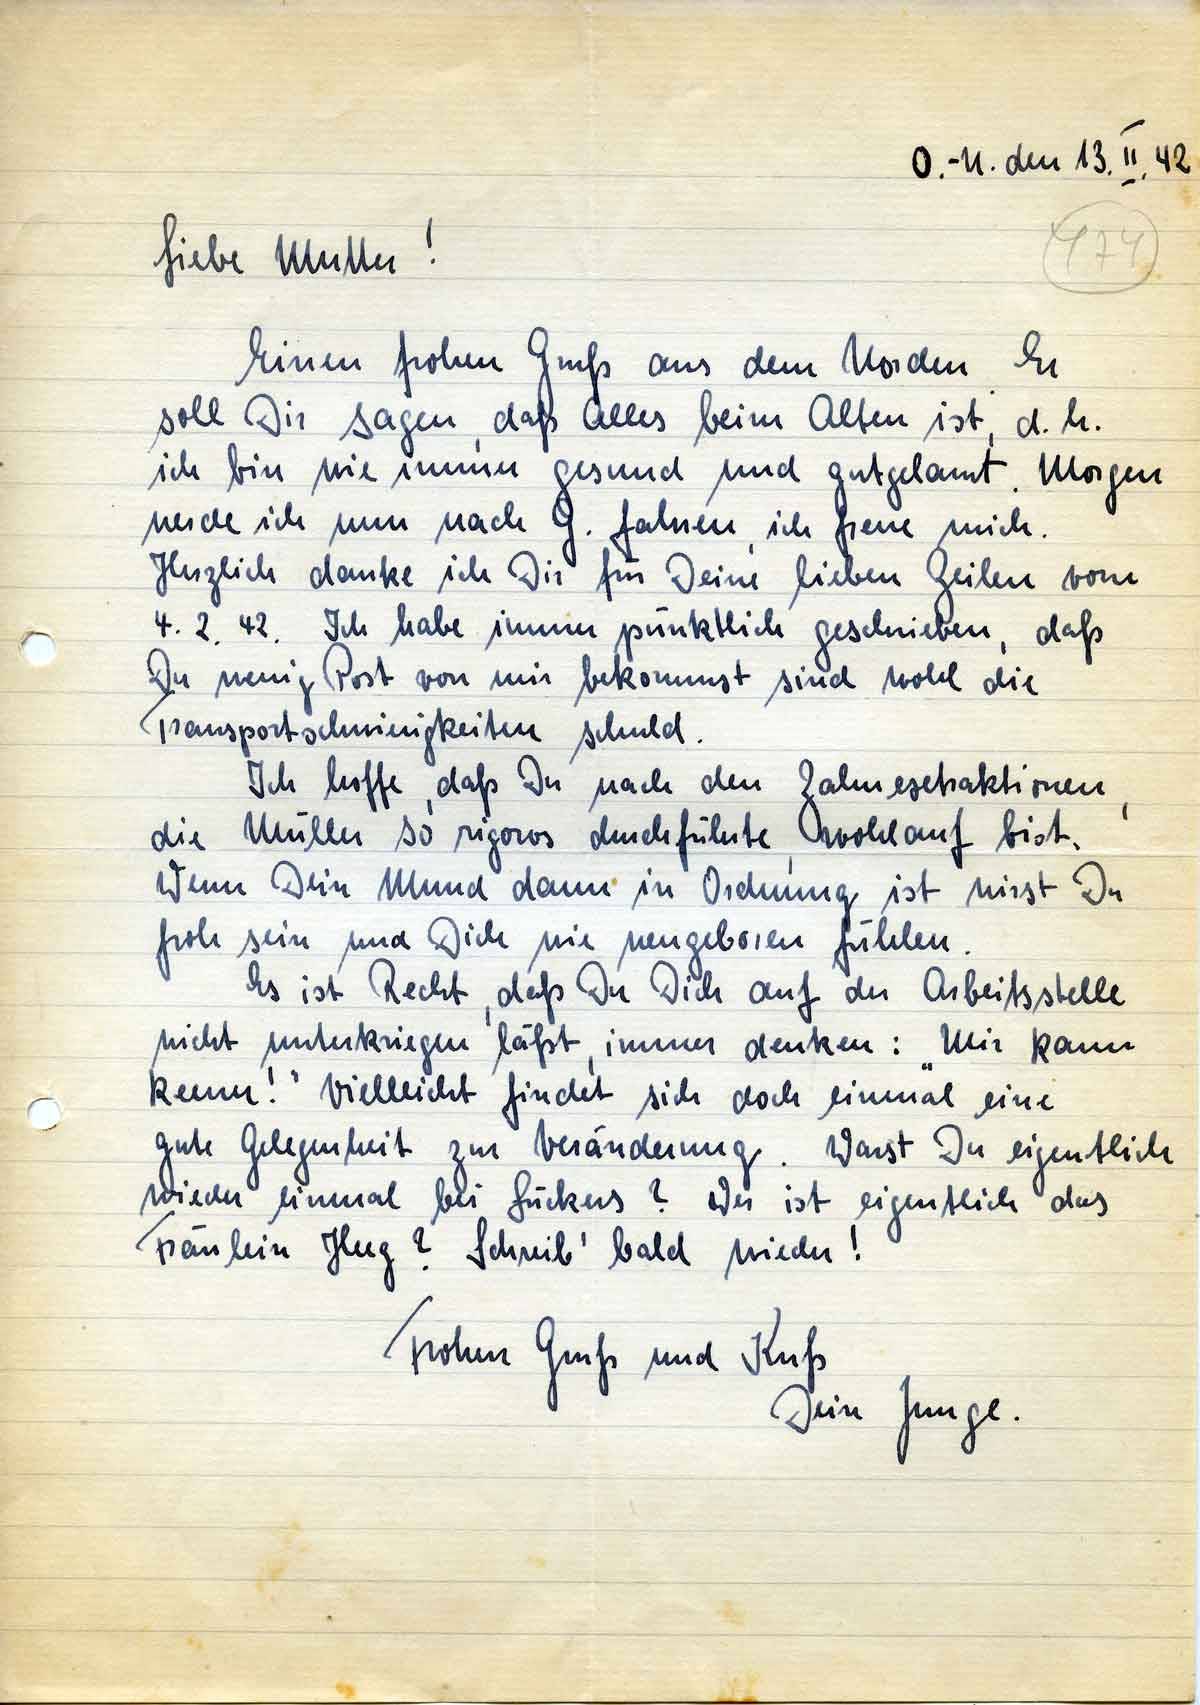 O.-U. den 13. II. 42
474
Liebe Mutter!
Einen frohen Gruß aus dem Norden. Er
soll Dir sagen, daß Alles beim Alten ist, d. h.
ich bin wie immer gesund und gutgelaunt. Morgen
werde ich nun nach G. fahren, ich freue mich.
Herzlich danke ich Dir für Deine lieben Zeilen vom
4. 2. 42. Ich habe immer pünktlich geschrieben, daß
Du wenig Post von mir bekommst sind wohl die
Transportschwierigkeiten schuld.
Ich hoffe, daß Du nach den Zahnextraktionen,
die Müller so rigoros durchführte, wohlauf bist.
Wenn Dein Mund dann in Ordnung ist wirst Du
froh sein und Dich wie neugeboren fühlen.
Es ist Recht, daß Du Dich auf der Arbeitsstelle
nicht unterkriegen läßt, immer denken: „Mir kann
keener!" Vielleicht findet sich doch einmal eine
gute Gelegenheit zur Veränderung. Warst Du eigentlich
wieder einmal bei Lückers? Wer ist eigentlich das
Fräulein Heeg? Schreib' bald wieder!
Frohen Gruß und Kuß
Dein Junge.